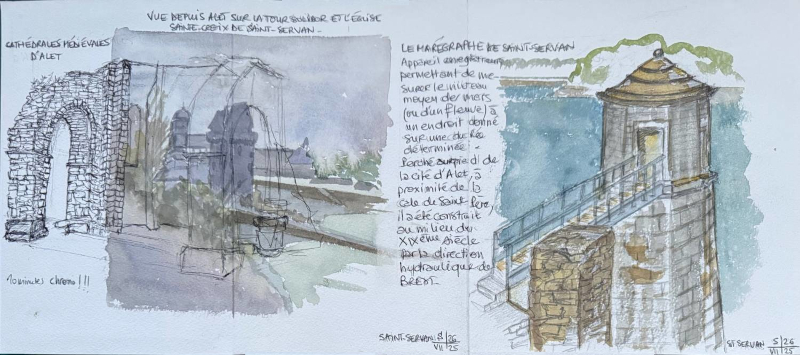 VUE DEPUIS ALET SUR LA TOUR SOLIDOR ET L'ÉGLISE
SAINTE-CROIX DE SAINT-SERVAN -
CATHÉDRALES MÉDIÉVALES
D'ALET
10 minutes chrono !!!
SAINT-SERVAN 8/26
VII/25
LE MARÉGRAPHE DE SAINT-SERVAN
Appareil enregistreur
permettant de me-
surer le niveau
moyen des mers
(ou d'un fleuve) à
un endroit donné
sur une durée
déterminée -
Perché au pied de
la cité d'Alet, à
proximité de la
cale de Saint-Père,
il a été construit
au milieu du
XIXème siècle
par la direction
hydraulique de
BREST -
ST SERVAN 5/26
VII/25